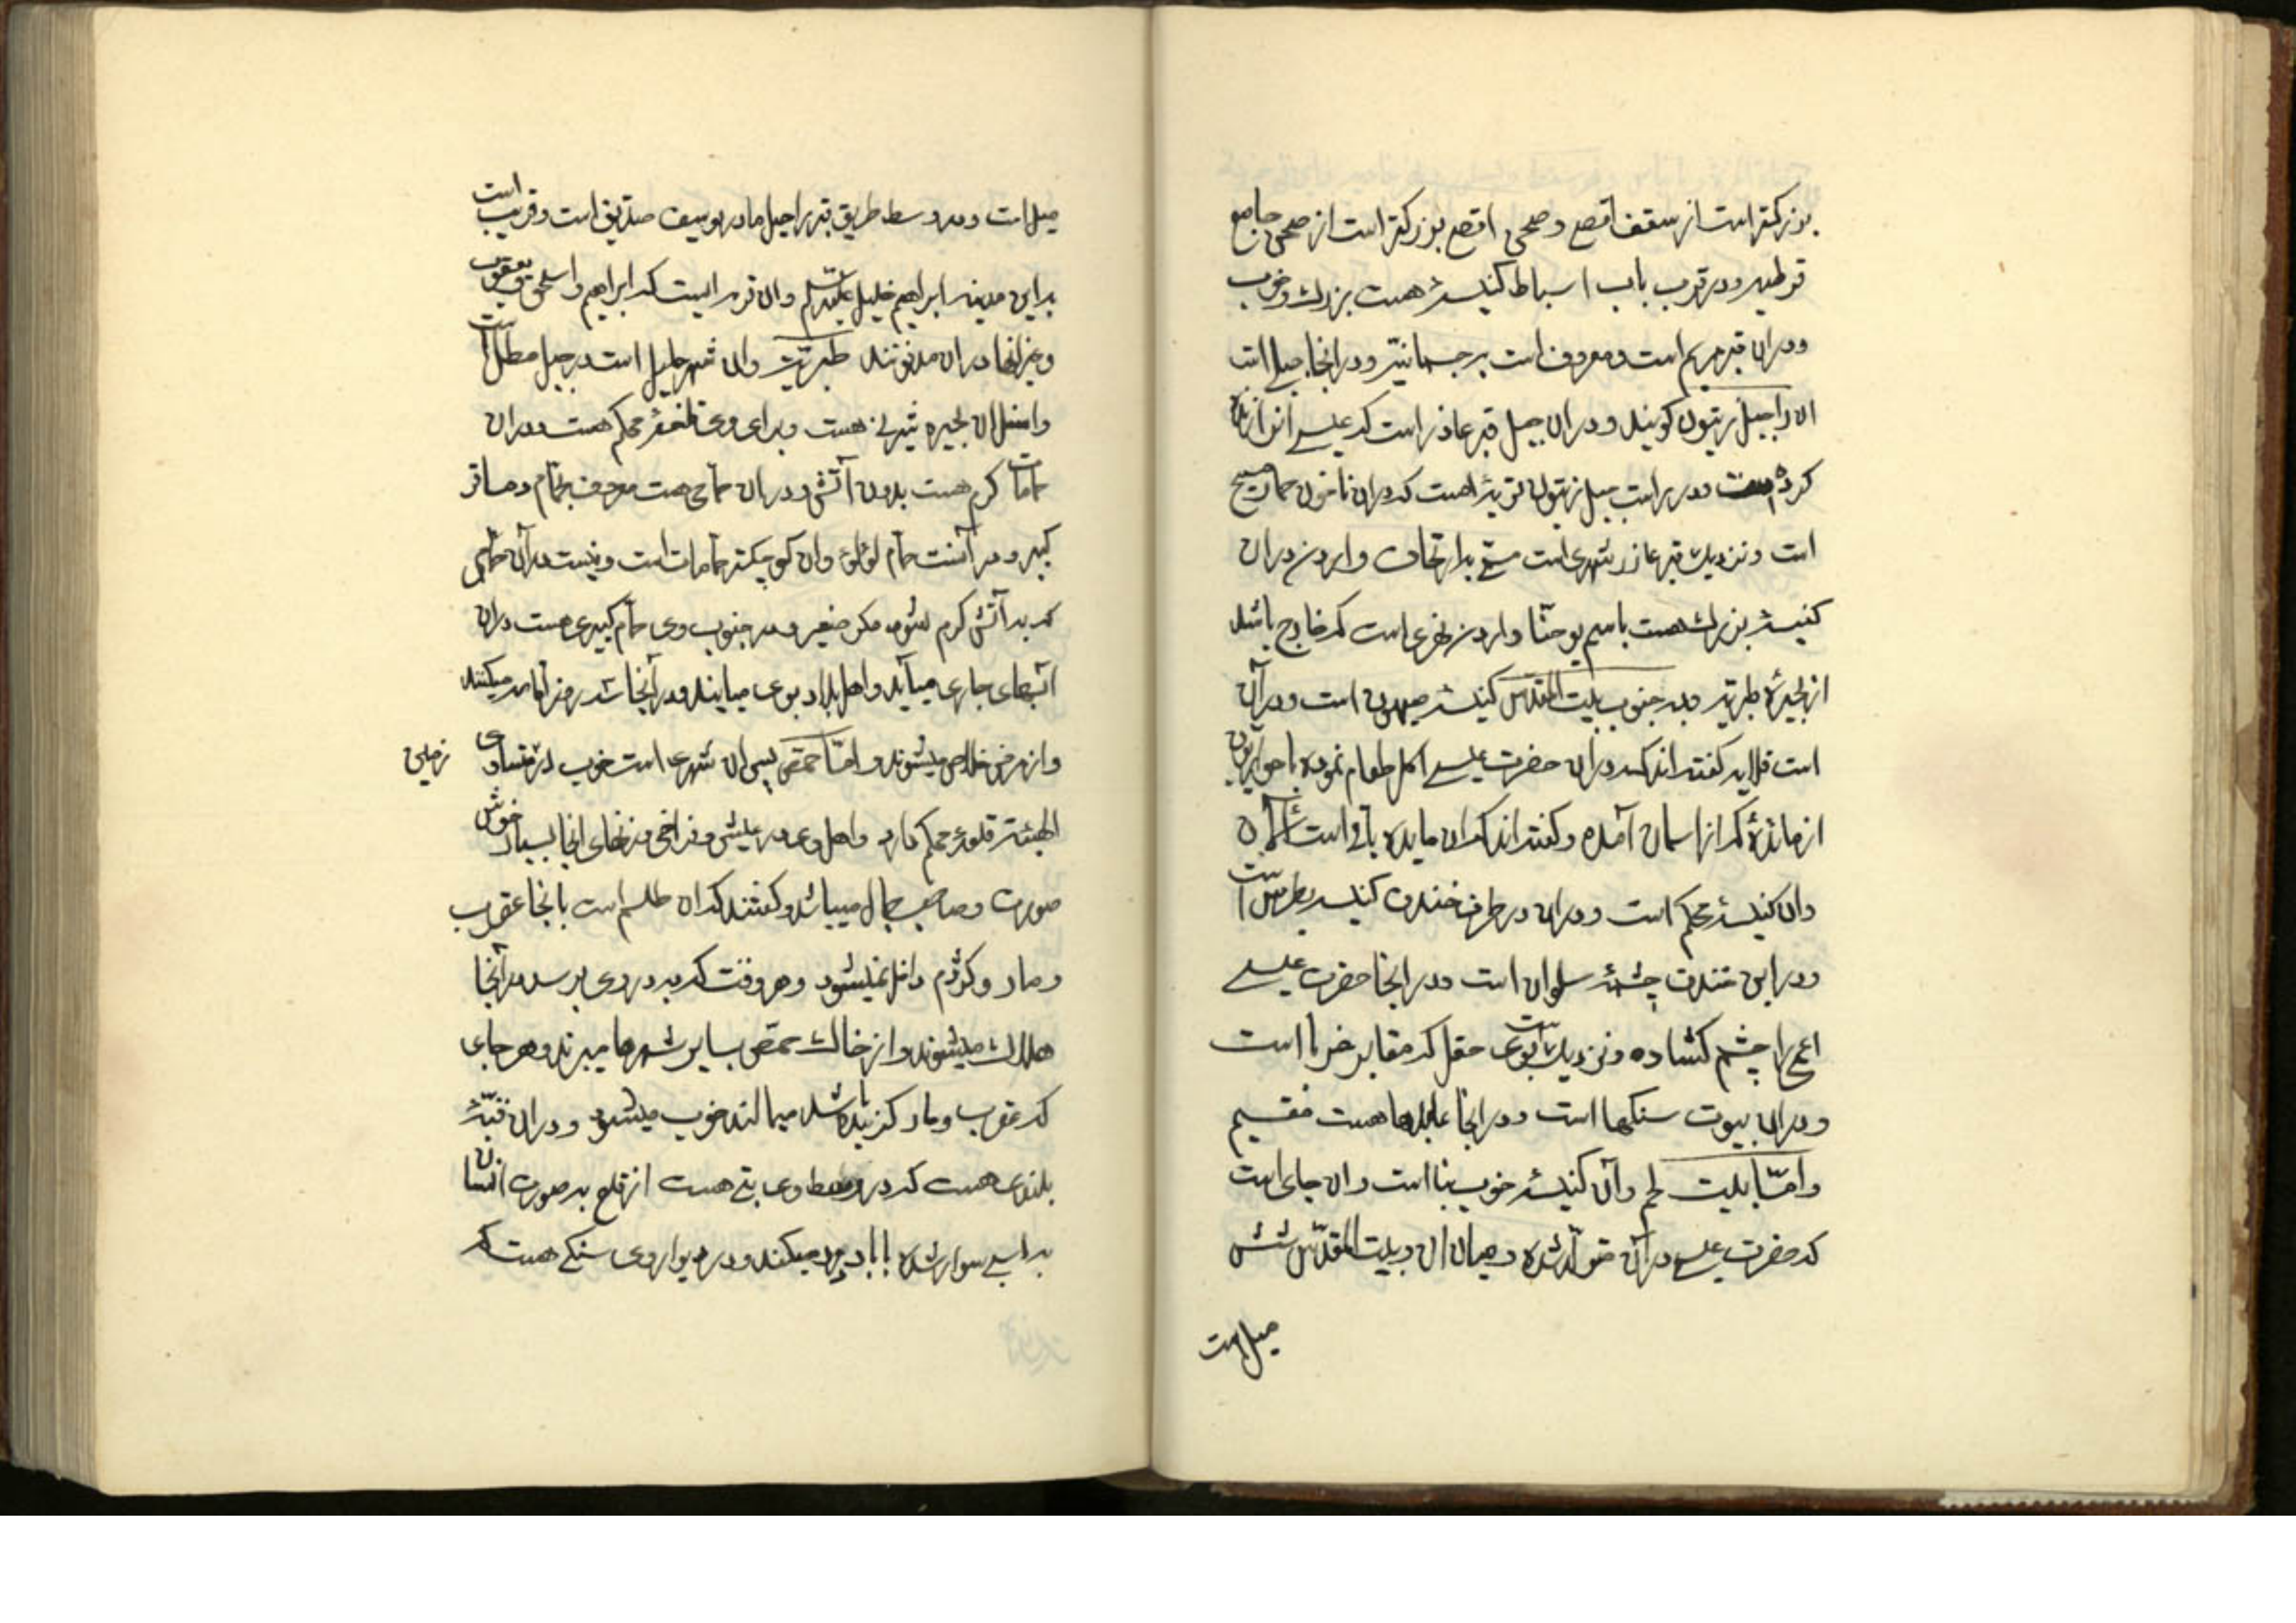 بزرکتر است از سقف اقصی و صحن اقصی بزرکتر است از صحن جامع
قرطبه و در قرب باب اسباط کنیسهٔ هست بزرک و خوب
و در ان قبر مریم است و معروف است بر جسمانیه و در انجا جبلی است
ان را جبل زیتون کویند و در ان جبل قبر عاذر است که عیسی انرا زنده
کرده است و در براست جبل زیتون قریهٔ هست که دران خاتون حمار مسیح
است و نزدیک قبر عازر شهری است مسمی به اریحات و اردن دران
کنیسهٔ بزرک هست باسم یوحنا و اردن نهری است که خارج باشد
از بحیرهٔ طبریه و بدر جنوب بیت المقدس کنیسهٔ صیهون است و در آن
است قلایه کفته اند که در ان حضرت عیسی اکل طعام نموده با حواریون
از مائدهٔ که از اسمان آمده و کفته اند که ان مایده باقی است الی الان
وان کنیسهٔ محکم است و در ان در طرف خندق کنیسه بطرس است
و در این خندق چشمهٔ سلوان است و در انجا حضرت عیسی
اعمی را چشم کشاده و نزدیک است بوی حقل که مقابر غربا است
و در ان بیوت سنکها است و در انجا عابدها هست مقیم
و امّا بیت لحم و آن کنیسهٔ خوب بنا است و ان جای است
که حضرت عیسی در آن متولّد شده و میان ان و بیت المقدّس شش
میل است
میل است و در وسط طریق قبر راحیل مادر یوسف صدّیق است و قریب است
بر این مدینه ابراهیم خلیل علیه السلم و ان قریه ایست که ابراهیم و اسحق و یعقوب
و غیر انها در ان مدفونند طبریّت و ان شهر جلیل است در جبل مطل است
و اسفل ان بحیره شیرین هست و برای وی قلعهٔ محکم هست و در ان
حمامات کرم هست بدون آتش و در ان حمامی هست معروف بحمّام دماقر
کبیر و در آنست حمّام لؤلؤ و ان کوچکتر حمّامات است و نیست در آن حمّامی
که به آتش کرم شود مکر صغیر و در جنوب وی حمّام کبیری هست دران
آبهای جاری میآید و اهل بلاد بوی میایند و در آنجا سه روز اقامه میکنند
و از مرض خلاص میشوند و امّا حمّص پس ان شهری است خوب در مستوی زمین
الهیئة قلعهٔ محکم دارد و اهل وی در عیش و فراخی و زنهای انجا بسیار خوش
صورت و صاحب جمال میباشد و کفتند که ان طلسم است بانجا عقرب
و مار و کژدم داخل نمیشود و هر وقت که به در وی برسد در آنجا
هلاک میشوند و از خاک حمّص بسایر شهرها میبرند و هر جای
که عقرب و مار کزیده باشد میمالند خوب میشود و در ان قبّهٔ
بلندی هست که در وسط وی بتی هست از قلع به صورت انسان
بر اسبی سوار شده با باد دور میکند و در دیوار وی سنکی هست که